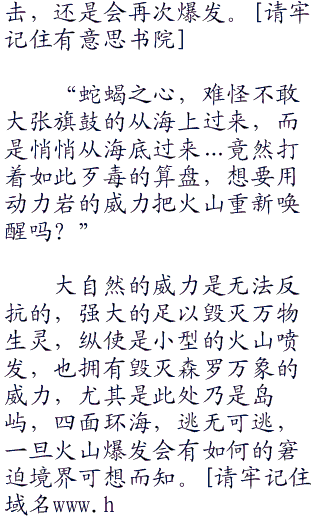 击，还是会再次爆发。[请牢
记住有意思书院]
“蛇蝎之心，难怪不敢
大张旗鼓的从海上过来，而
是悄悄从海底过来…竟然打
着如此歹毒的算盘，想要用
动力岩的威力把火山重新唤
醒吗？”
大自然的威力是无法反
抗的，强大的足以毁灭万物
生灵，纵使是小型的火山喷
发，也拥有毁灭森罗万象的
威力，尤其是此处乃是岛
屿，四面环海，逃无可逃，
一旦火山爆发会有如何的窘
迫境界可想而知。[请牢记住
域名www.h